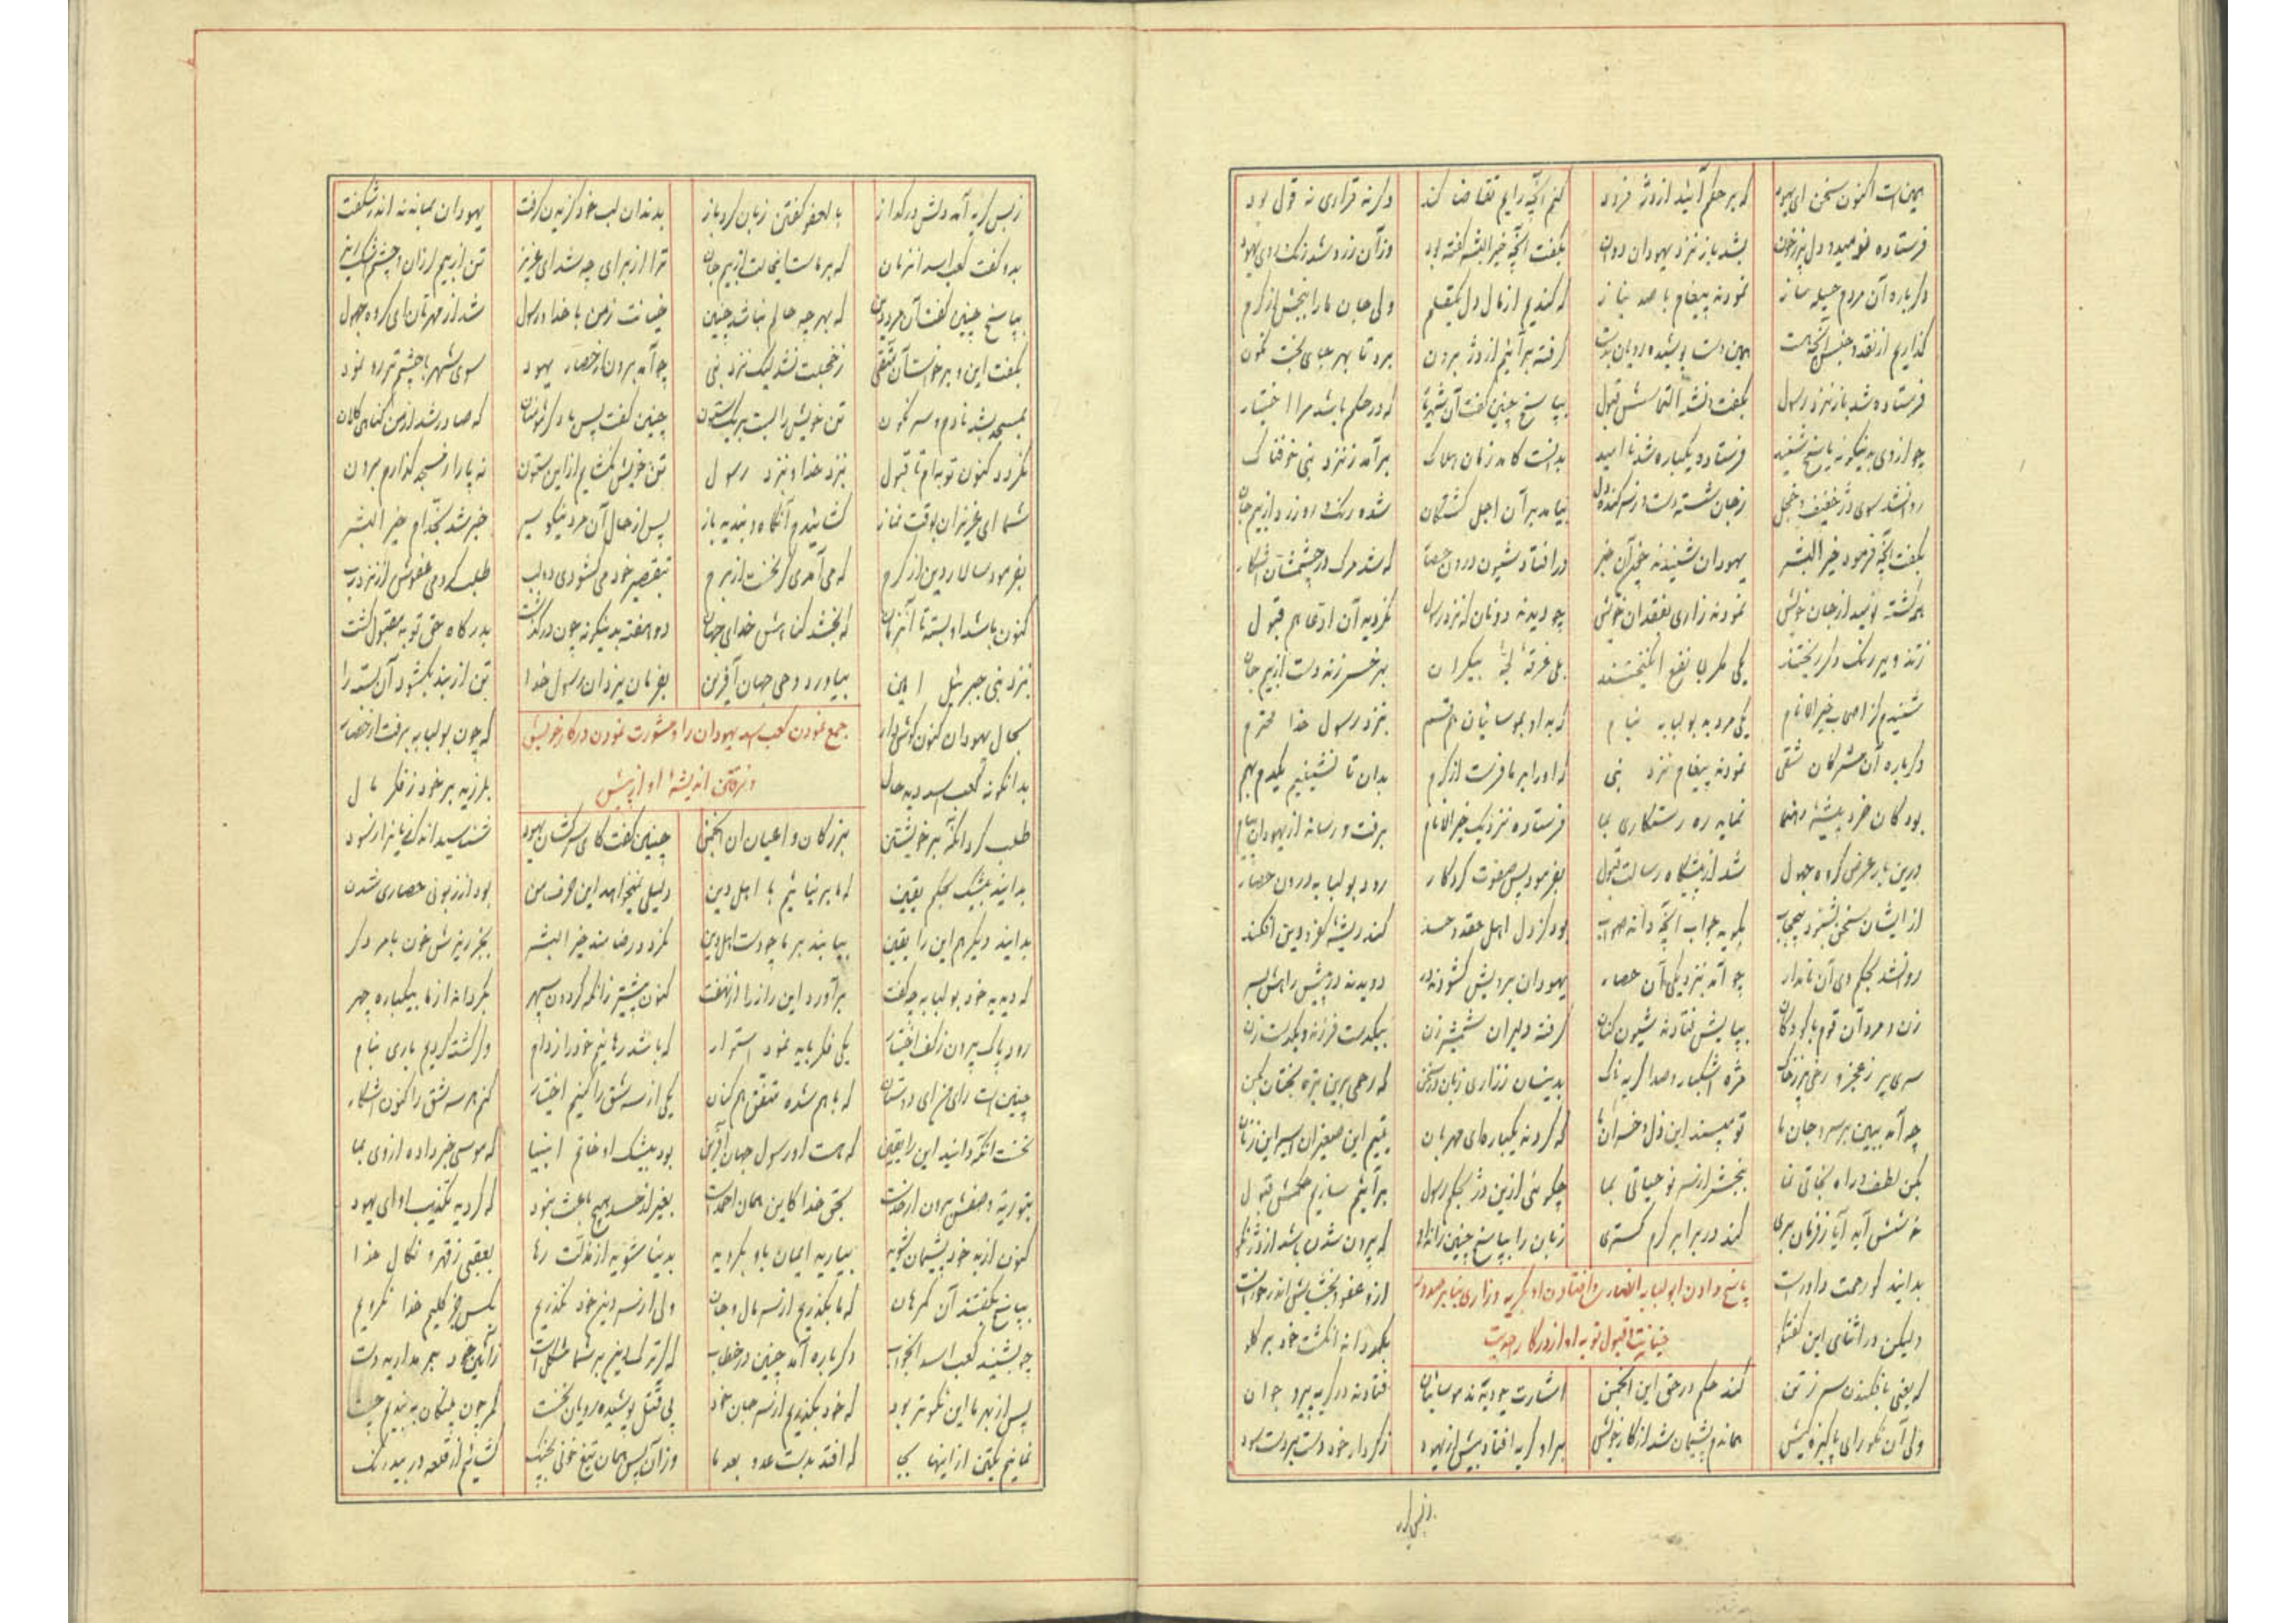 همین است اکنون سخن ای یهود که بر حکم آئید از دژ فرود کنم آنچه رایم تقاضا کند دگرنه قراری نه قول بود
فرستاده نومید و دل پر ز خون بشد باز نزد یهودان دون بگفت آنچه خیر البشر گفته بود وزآن زرد شد رنگ روی یهود
دگرباره آن مردم حیله ساز نمودند پیغام با صد نیاز که کندیم از مال دل یکقلم ولی جان ما را ببخش از کرم
گذاریم از نقد و جنس آنچه هست همین دست پوشیده رویان بدست گرفته برآئیم از دژ برون برد تا بهر جای بخت نگون
فرستاده شد باز نزد رسول بگفت و نشد التماسش قبول بپاسخ چنین گفت آن شهریار که در حکم باشد مرا اختیار
چو از وی بدینگونه پاسخ شنید فرستاده یکباره شد ناامید بدانست کامد زمان هلاک برآمد ز نزد نبی خوفناک
روانشد سوی دژ خفیف و خجل ز جان شسته دست و ز سر کنده دل بیامد بر آن اجل گشتگان شده رنگ رو زرد از بیم جان
بگفت آنچه فرمود خیر البشر یهودان شنیدند چون آن خبر درافتاد شیون درون حصار که شد مرگ در چشمشان آشکار
همه گشته نومید از جان خویش نمودند زاری بفقدان خویش چو دیدند دونان که نزد رسول نگردید آن ادعا هم قبول
زدند و پر رنگ دگر ریختند یکی مکر با نفع انگیختند بلی غرقهٔ لجهٔ بیکران بهر خس زند دست از بیم جان
شنیدم ز اصحاب خیر الانام یکی مرد بد بولبابه بنام که بد او بموسائیان هم قسم بنزد رسول خدا محترم
دگرباره آن مشرکان شقی نمودند پیغام نزد نبی که او را بر ما فرست از کرم بدان تا نشینیم یکدم بهم
بود کان خرد پیشهٔ رهنما نماید ره رستگاری بما فرستاده نزدیک خیر الانام برفت و رساند از یهودان پیام
درین بار عرض گروه جهول شد از پیشگاه رسالت قبول بفرمود پس صفوت کردگار رود بولبابه درون حصار
از ایشان سخن بشنود بیحجاب بگوید جواب آنچه داند صواب بود کز دل اهل حقد و حسد کند ریشهٔ کفر و دین افکند
روانشد بحکم وی آن نامدار چو آمد بنزدیکی آن حصار یهودان برویش گشودند در دویدند در پیش راهش بسر
زن و مرد آن قوم با کودکان بپایش فتادند شیون کنان گرفته دلیران شمشیرزن بیکدست فرزند و یکدست زن
سری پر ز عجز و رخی پر ز خاک مژه اشکبار و صدا گریه ناک بدینسان ز زاری زبان در سخن که رحمی برین تیره بختان بکن
چه آمد ببین بر سر و جان ما تو مپسند این ذل و خسران ما که گردند یکباره ای مهربان یتیم این صغیران اسیر این زنان
بکن لطف و راه نجاتی نما ببخش از سر نو حیاتی بما چگوئی ازین دژ بحکم رسول برآئیم سازیم حکمش قبول
خوشش آید آیا ز فرمان بری کند در برابر کرم گستری زبان را بپاسخ چنین راند او که بیرون شدن باشد از دژ نکو
بدانید کو رحمت داورست ازو عفو و بخشایش اندرخورست
پاسخ دادن ابولبابه انصار را و افتادن او بگریه و زاری بنابر صدور
خیانت و قبول توبه او از درگاه احدیت
ولیکن در اثنای این گفتگو بگرداند انگشت خود بر گلو
که یعنی بافکندن سر ز تن کند حکم در حق این انجمن اشارت چو دیدند موسائیان فتادند در گریه پیر و جوان
ولی آن نکو رای پاکیزه کیش هماندم پشیمان شد از کار خویش بر او گریه افتاد بیش از یهود ز کردار خود دست بر دست سود
ز بس گریه
ز بس گریه آمد دلش در گداز بالعفو گفتن زبان کرد باز بدندان لب خود گزیدن گرفت یهودان بماندند اندر شگفت
بدو گفت کعب اسد آنزمان که بر ماست اینحالت از بیم جان ترا از برای چه شد ای عزیز تن از بیم لرزان و چشم اشکریز
بپاسخ چنین گفت آن مرد دین که بهر چه حالم نباشد چنین خیانت ز من با خدا و رسول شد از مهرتان ای گروه جهول
بگفت این و برخاست آن متقی ز خجلت نشد لیک نزد نبی چو آمد برون از حصار یهود سوی شهر با چشم تر رو نمود
بمسجد بشد نادم و سرنگون تن خویش را بست بر یک ستون چنین گفت پس با دگر مؤمنان که صادر شد از من گناهی کلان
نگردد کنون توبه ام تا قبول بنزد خدا و نزد رسول تن خویش نگشایم از این ستون نه پا را ز مسجد گذارم برون
شما ای عزیزان بوقت نماز گشائیدم آنگاه و بندید باز پس از حال آن مرد نیکو سیر خبر شد بخدام خیر البشر
بفرمود سالار دین از کرم که می آمدی گر نخست از برم بتقصیر خود می گشودی دو لب طلب کردمی عفوش از نزد رب
کنون باشد او بسته تا آنزمان که بخشد گناهش خدای جهان دو هفته بدینگونه چون در گذشت بدرگاه حق توبه مقبول گشت
بنزد نبی جبرئیل امین بیاورد وحی جهان آفرین بفرمان یزدان رسول خدا تن از بند بگشود آن بسته را
بحال یهودان کنون گوش دار که چون بولبابه برفت از حصار
جمع نمودن کعب اسد یهودان را و مشورت نمودن در کار خویش
و نرفتن اندیشهٔ او از پیش
بدانگونه کعب اسد دید حال بلرزید بر خود ز فکر مآل
طلب کرد آنگه بر خویشتن بزرگان و اعیان آن انجمن چنین گفت کای سرکشان یهود شناسید اندک زیان را ز سود
بدانید بیشک بحکم یقین که ما بر نیائیم با اهل دین دلیلی نمیخواهد این حرف من بود از زبونی حصاری شدن
بدانید دیگر هم این را یقین بیابند بر ما چو دست اهل دین نگردد رضامند خیر البشر بجز ریزش خون بامر دگر
که دیدید خود بولبابه چه گفت برآورد این راز را از نهفت کنون پیشتر زانکه گردون سپهر بگرداند از ما بیکباره چهر
رود پاک بیرون ز کف اختیار یکی فکر باید نمود استوار که باشد رهانیم خود را ز دام وگر کشته گردیم باری بنام
چنین است رای من ای دوستان که با هم شده متفق هم کنان یکی از سه شق را کنیم اختیار کنم هر سه شق را کنون آشکار
نخست آنکه دانید این را یقین که هست او رسول جهان آفرین بود بیشک او خاتم انبیا که موسی خبر داده از وی بما
بتوریة وصفش برون از حدست بحق خدا کاین همان احمدست بغیر از حسد هیچ باعث نبود که کردید تکذیب او ای یهود
کنون از بد خود پشیمان شوید بیارید ایمان باو بگروید بدنیا شوید از مذلت رها بعقبی ز قهر و نکال خدا
بپاسخ بگفتند آن گمرهان که ما بگذریم از سر مال و جان ولی از سر دین خود نگذریم بکس جز کلیم خدا نگرویم
چو بشنید کعب اسد آنجواب دگرباره آمد چنین در خطاب که گر ترک دین بر شما مشکل است ز آئین خود بر مدارید دست
پس از بهر ما این نکوتر بود که خود بگذریم از سر جان خود پی قتل پوشیده رویان نخست کمر چون پلنگان ببندیم چست
نمانیم یکتن از اینها بجا که افتد بدست عدو بعد ما وزآن پس همان تیغ خونی بچنگ گشائیم از قلعه در بیدرنگ